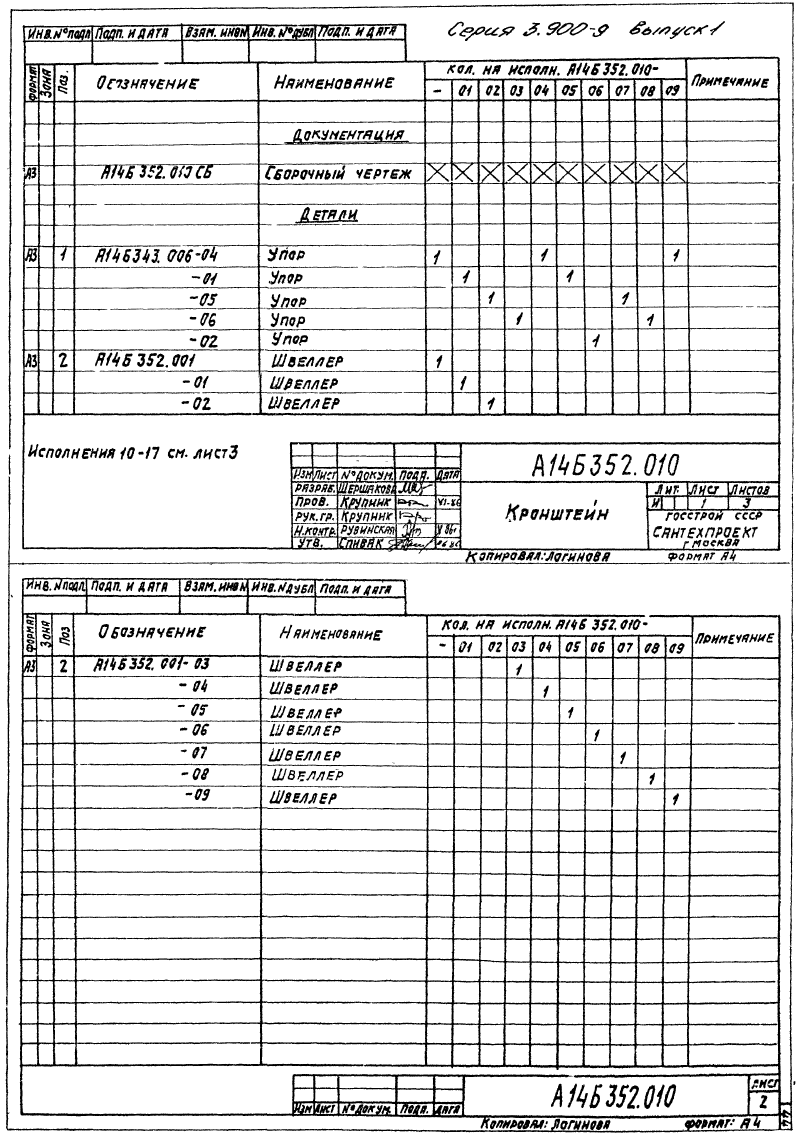 Серия 3.900-9 Выпуск 1
Инв.№подл Подп. и дата Взам. инв№ Инв.№дубл Подп. и дата
Формат Зона Поз. Обозначение Наименование Кол. на исполн. А14Б352.010- Примечание
- 01 02 03 04 05 06 07 08 09
Документация
А3 А14Б352.010СБ Сборочный чертеж X X X X X X X X X X
Детали
А3 1 А14Б343.006-04 Упор 1 1 1
-01 Упор 1 1
-05 Упор 1 1
-06 Упор 1 1
-02 Упор 1
А3 2 А14Б352.001 Швеллер 1
-01 Швеллер 1
-02 Швеллер 1
Исполнения 10-17 см. лист 3
А14Б352.010
Изм Лист №докум. Подп. Дата
Разраб. Шершакова
Пров. Крупник VI-86
Рук.гр. Крупник
Н.контр. Рувинская
Утв. Спивак
Кронштейн
Лит. Лист Листов
И 1 3
Госстрой СССР
Сантехпроект
г.Москва
Копировал: Логинова Формат А4
Инв.№подл. Подп. и дата Взам. инв№ Инв.№дубл Подп. и дата
Формат Зона Поз Обозначение Наименование Кол. на исполн. А14Б352.010- Примечание
- 01 02 03 04 05 06 07 08 09
А3 2 А14Б352.001-03 Швеллер 1
-04 Швеллер 1
-05 Швеллер 1
-06 Швеллер 1
-07 Швеллер 1
-08 Швеллер 1
-09 Швеллер 1
Изм Лист №докум. Подп. Дата
А14Б352.010
Лист
2
Копировал: Логинова Формат: А4